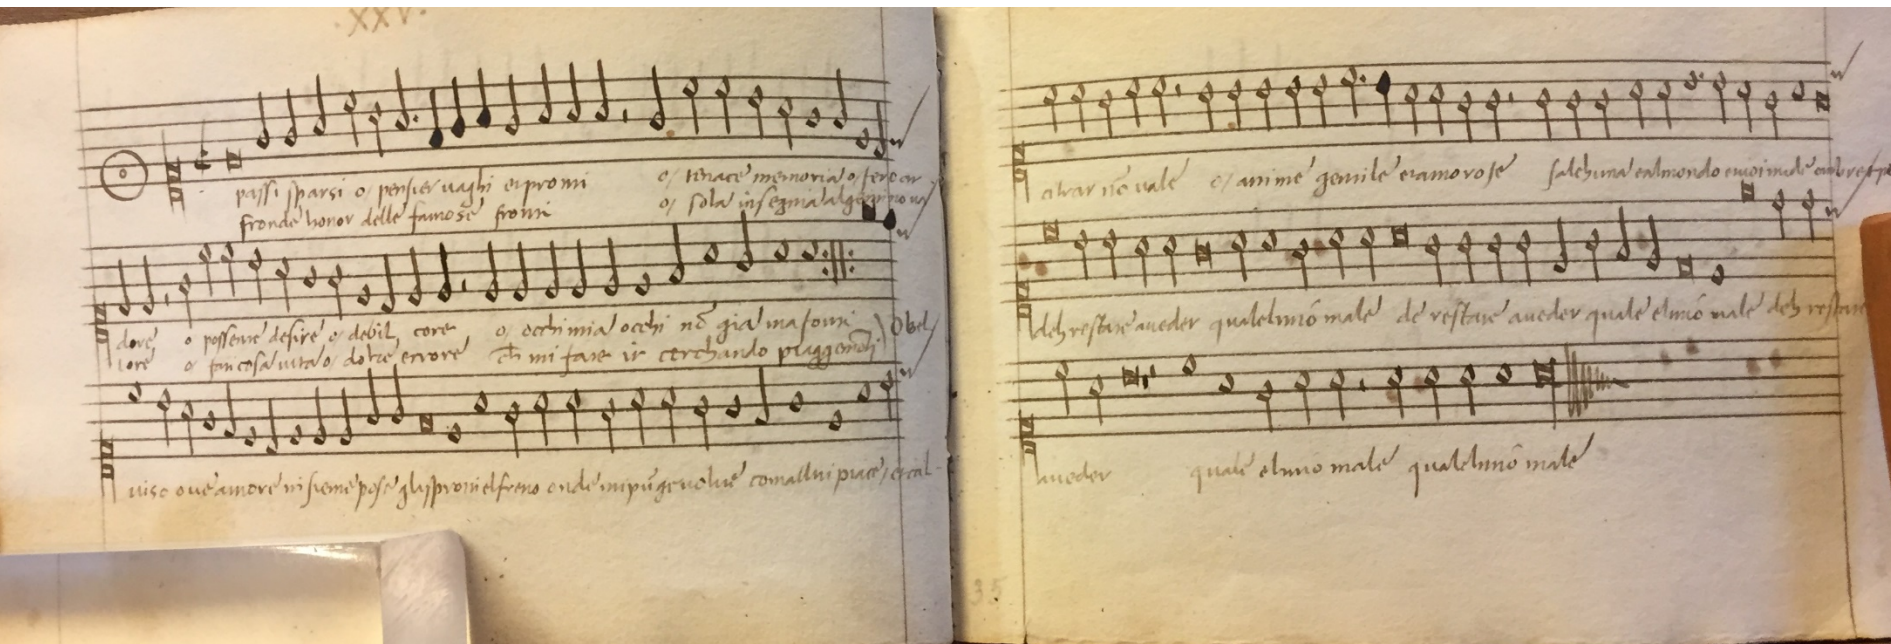 ·XXV·
passi sparsi o/ pensier vaghi et promti o/ tenace memoria o/ fero ar
fronde honor delle famose fronti o/ sola insegnia al gemino va
dore o possente desire o/ debil core o/ occhi mia occhi nõ gia ma fonti O bel
lore o/ fatichosa vita o/ dolce errore mi fate ir cerchando piagge
viso ove amore insieme pose gli sproni el freno onde mi puge volve come allui piace et cal
citrar nõ vale o/ anime gentile et amorose salchuna e al mondo et voi nude
deh restate a veder qual el mio male de restate a veder quale el mio male deh restate
a veder quale el mio male qual el mio male
35